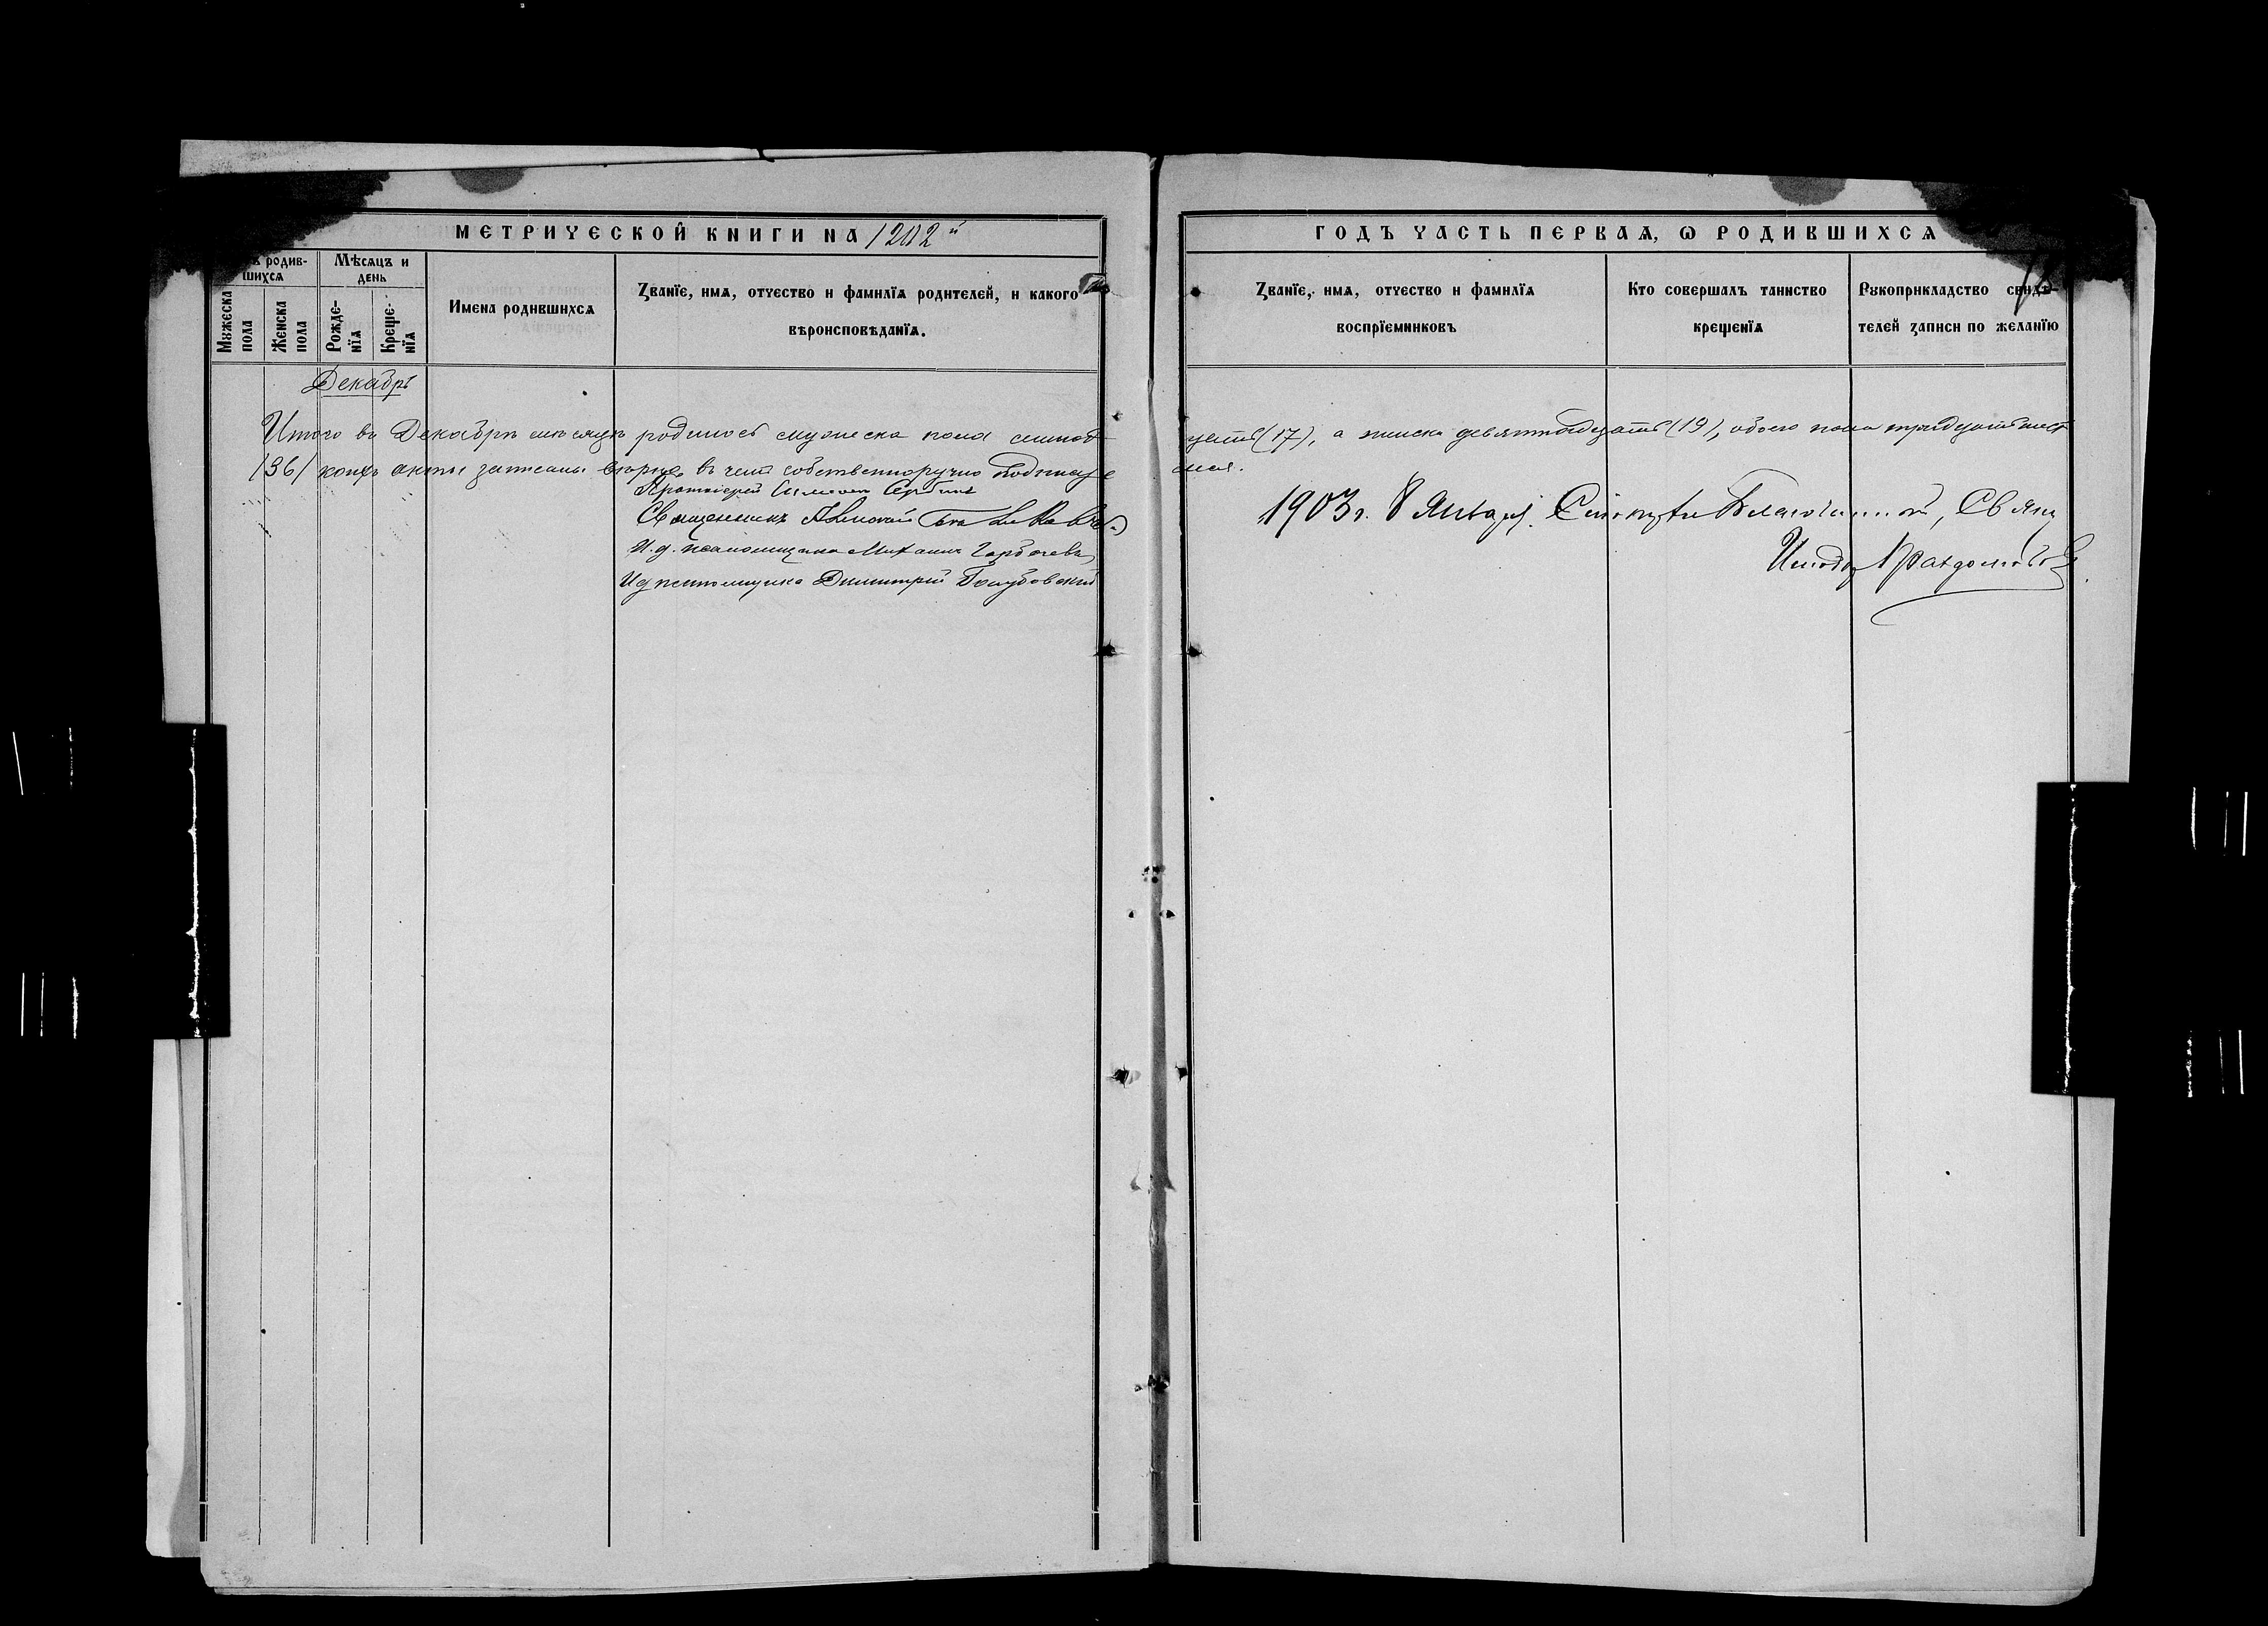 МЕТРИЧЕСКОЙ КНИГИ НА 1902й
ГОДЪ ЧАСТЬ ПЕРВАЯ, Ѡ РОДИВШИХСѦ
родив-
шихсѧ
Мѣсѧцъ и
день
Мꙋжеска
пола
Женска
пола
Рожде-
нїѧ
Креще-
нїѧ
Имена родившихсѧ
Званїе, имѧ, отчество и фамилїѧ родителей, и какого
вѣроисповѣданїѧ.
Званїе, имѧ, отчество и фамилїѧ
воспрїемниковъ
Кто совершалъ таинство
крещенїѧ
Рꙋкоприкладство свидѣ-
телей записи по желанїю
Декабрь
Итого въ Декабрѣ мѣсяцѣ родилось мужеска пола семнад
цать (17), а женска девятнадцать (19), обоего пола тридцать шесть
(36) коихъ акты записаны вѣрно, въ чемъ собственноручно подписуе
мся.
Протоіерей Симеонъ
Священникъ
И. д. псаломщика Михаилъ Горбачевъ
И д псаломщика Димитрій Голубовскій
1903 г. 8 Января. Благочинный, Свящ